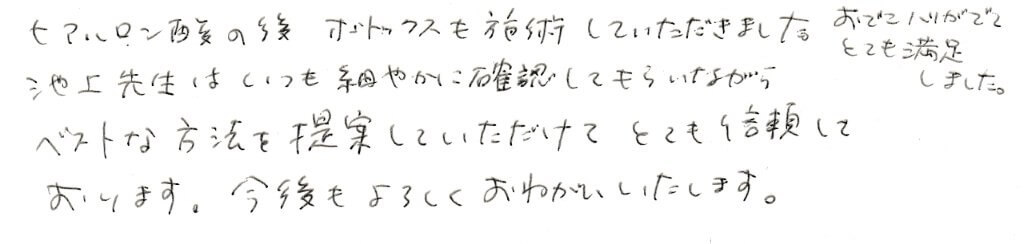 ヒアルロン酸の後 ボトックスも施術していただきました。
おでこハリがでて
とても満足
しました。
池上先生はいつも細やかに確認してもらいながら
ベストな方法を提案していただけて とても信頼して
おります。今後もよろしくおねがいいたします。